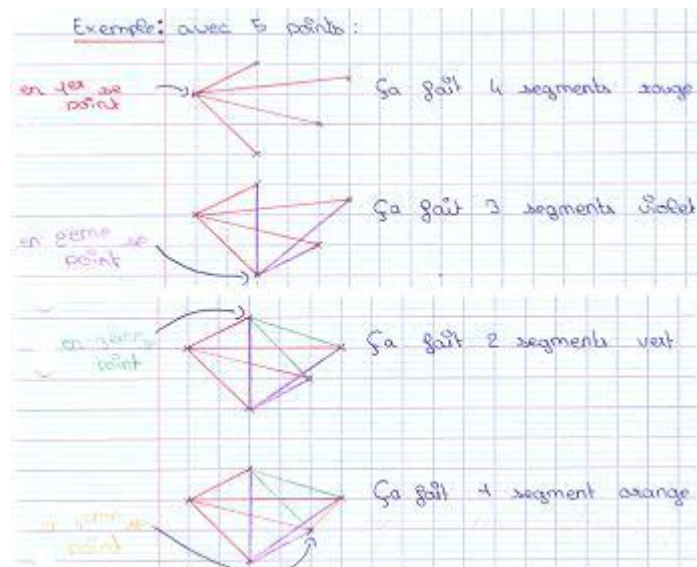 Exemple: avec 5 points:
en 1er se
point
Ça fait 4 segments rouge
en 2eme se
point
Ça fait 3 segments violet
en 3eme se
point
Ça fait 2 segments vert
Ça fait 1 segment orange
en 4eme se
point